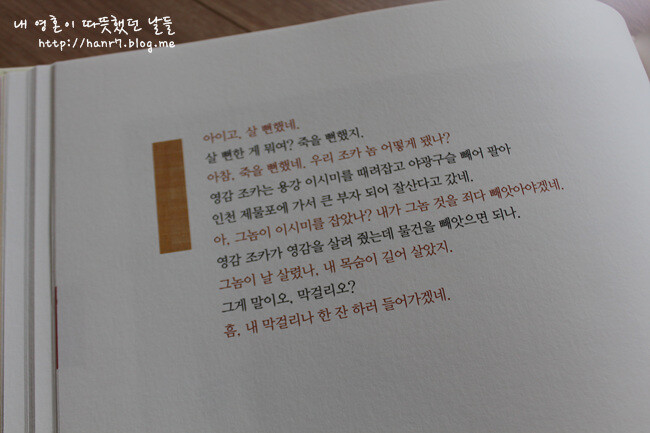 내 영혼이 따뜻했던 날들
http://hanr7.blog.me
아이고, 살 뻔했네.
살 뻔한 게 뭐여? 죽을 뻔했지.
아참, 죽을 뻔했네. 우리 조카 놈 어떻게 됐나?
영감 조카는 용강 이시미를 때려잡고 야광구슬 빼어 팔아
인천 제물포에 가서 큰 부자 되어 잘산다고 갔네.
아, 그놈이 이시미를 잡았나? 내가 그놈 것을 죄다 빼앗아야겠네.
영감 조카가 영감을 살려 줬는데 물건을 빼앗으면 되나.
그놈이 날 살렸나, 내 목숨이 길어 살았지.
그게 말이오, 막걸리오?
흠, 내 막걸리나 한 잔 하러 들어가겠네.